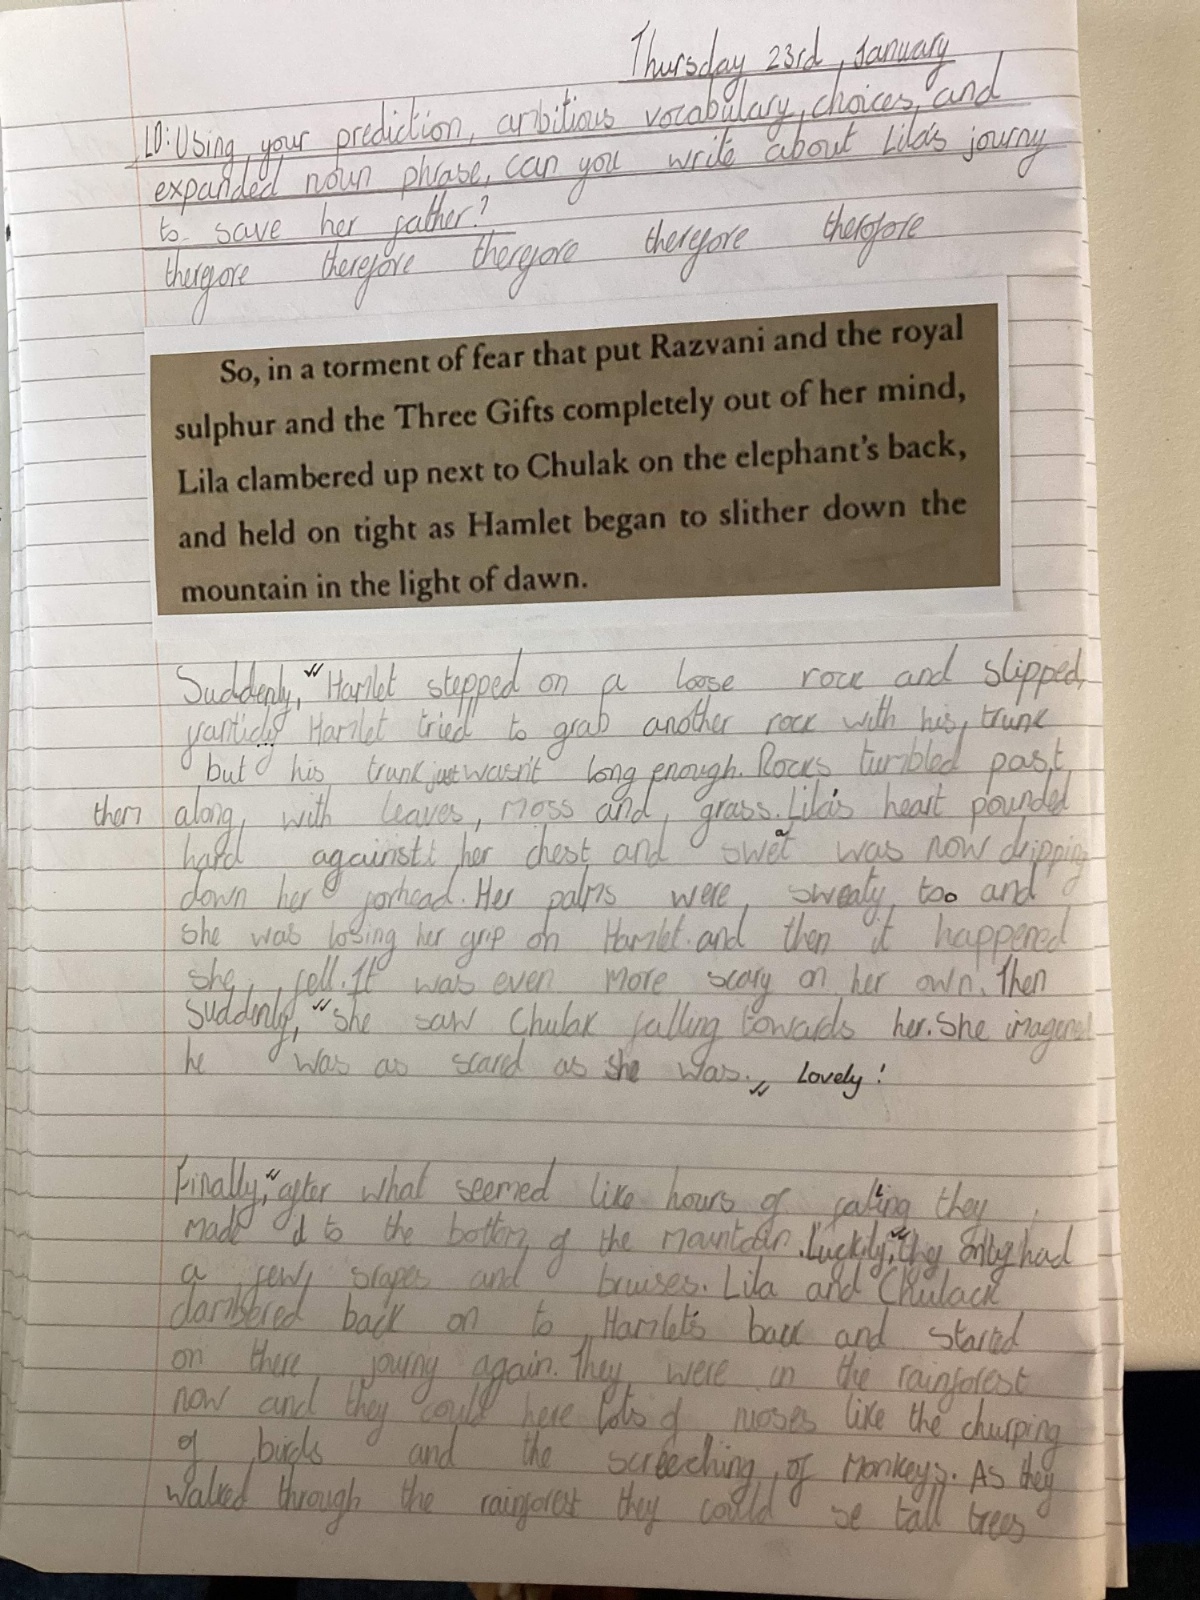 Thursday 23rd, January
LO: Using your prediction, ambitious vocabulary, choices, and
expanded noun phrase, can you write about Lila's journy
to save her father?
therefore therefore therefore therefore therofore
So, in a torment of fear that put Razvani and the royal
sulphur and the Three Gifts completely out of her mind,
Lila clambered up next to Chulak on the elephant's back,
and held on tight as Hamlet began to slither down the
mountain in the light of dawn.
Suddenly, Hamlet stepped on a loose rock and slipped,
Hamlet tried to grab another rock with his trunk
but his trunk just wasn't long enough. Rocks tumbled past
them along, with leaves, moss and grass. Lila's heart pounded
hard against her chest and sweat was now dripping
down her forhead. Her palms were sweaty too and
she was losing her grip on Hamlet and then it happened
she fell. It was even more scary on her own. Then
Suddenly, she saw Chulak falling towards her. She imagened
he was as scared as she was. Lovely!
Finally, after what seemed like hours of falling they
made it to the bottom of the mountain. Luckily, they only had
a few scrapes and bruises. Lila and Chulack
clambered back on to Hamlet's back and started
on there journy again. They were in the rainforest
now and they could here lots of noises like the churping
of birds and the screeching of monkeys. As they
walked through the rainforest they could se tall trees